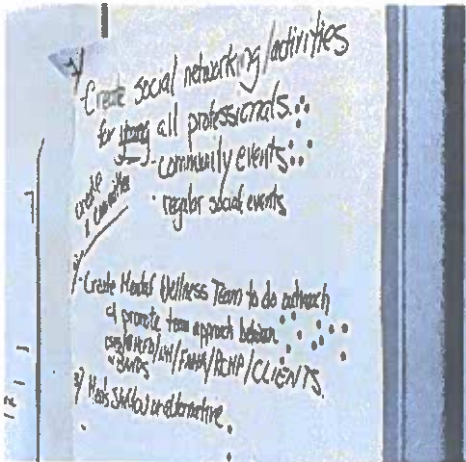 2/
Create social networking/activities
for young all professionals
- community events
· regular social events
create
a committee
1/
- Create Mental Wellness Team to do outreach
& promote team approach between
/FNHA/RCMP/CLIENTS
3/ Men's Shelter or alternative